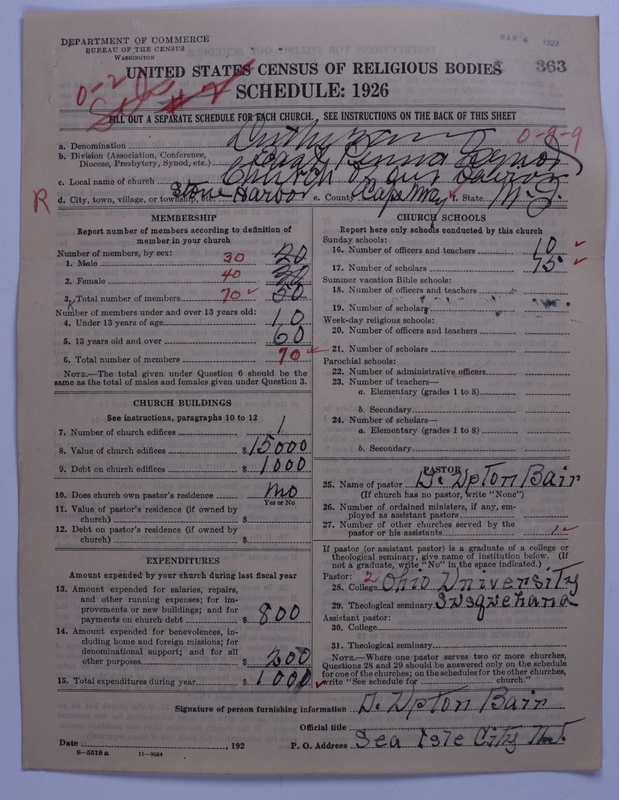 DEPARTMENT OF COMMERCE
BUREAU OF THE CENSUS
WASHINGTON
MAR 4 1927
363
UNITED STATES CENSUS OF RELIGIOUS BODIES
SCHEDULE: 1926
FILL OUT A SEPARATE SCHEDULE FOR EACH CHURCH. SEE INSTRUCTIONS ON THE BACK OF THIS SHEET
0-2-9
a. Denomination
b. Division (Association, Conference, Diocese, Presbytery, Synod, etc.) East Penna Synod
c. Local name of church Church of our Saviour
R d. City, town, village, or township, etc. Stone Harbor e. County Cape May f. State N. J.
MEMBERSHIP
Report number of members according to definition of member in your church
Number of members, by sex:
1. Male 30 20
2. Female 40 30
3. Total number of members 70 50
Number of members under and over 13 years old:
4. Under 13 years of age 10
5. 13 years old and over 60
6. Total number of members 70
NOTE.—The total given under Question 6 should be the same as the total of males and females given under Question 3.
CHURCH BUILDINGS
See instructions, paragraphs 10 to 12
7. Number of church edifices 1
8. Value of church edifices $ 15000
9. Debt on church edifices $ 1000
10. Does church own pastor's residence No
Yes or No
11. Value of pastor's residence (if owned by church) $
12. Debt on pastor's residence (if owned by church) $
EXPENDITURES
Amount expended by your church during last fiscal year
13. Amount expended for salaries, repairs, and other running expenses; for improvements or new buildings; and for payments on church debt $ 800
14. Amount expended for benevolences, including home and foreign missions; for denominational support; and for all other purposes $ 200
15. Total expenditures during year $ 1000
CHURCH SCHOOLS
Report here only schools conducted by this church
Sunday schools:
16. Number of officers and teachers 10
17. Number of scholars 75
Summer vacation Bible schools:
18. Number of officers and teachers
19. Number of scholars
Week-day religious schools:
20. Number of officers and teachers
21. Number of scholars
Parochial schools:
22. Number of administrative officers
23. Number of teachers—
a. Elementary (grades 1 to 8)
b. Secondary
24. Number of scholars—
a. Elementary (grades 1 to 8)
b. Secondary
PASTOR
25. Name of pastor D. Upton Bair
(If church has no pastor, write "None")
26. Number of ordained ministers, if any, employed as assistant pastors
27. Number of other churches served by the pastor or his assistants 1
If pastor (or assistant pastor) is a graduate of a college or theological seminary, give name of institution below. (If not a graduate, write "No" in the space indicated.)
Pastor:
28. College 2 Ohio University
29. Theological seminary Susquehana
Assistant pastor:
30. College
31. Theological seminary
NOTE.—Where one pastor serves two or more churches, Questions 28 and 29 should be answered only on the schedule for one of the churches; on the schedules for the other churches, write "See schedule for church."
Signature of person furnishing information D. Upton Bair
Official title
Date , 192 P. O. Address Sea Isle City N.J.
8-5518a 11-9284